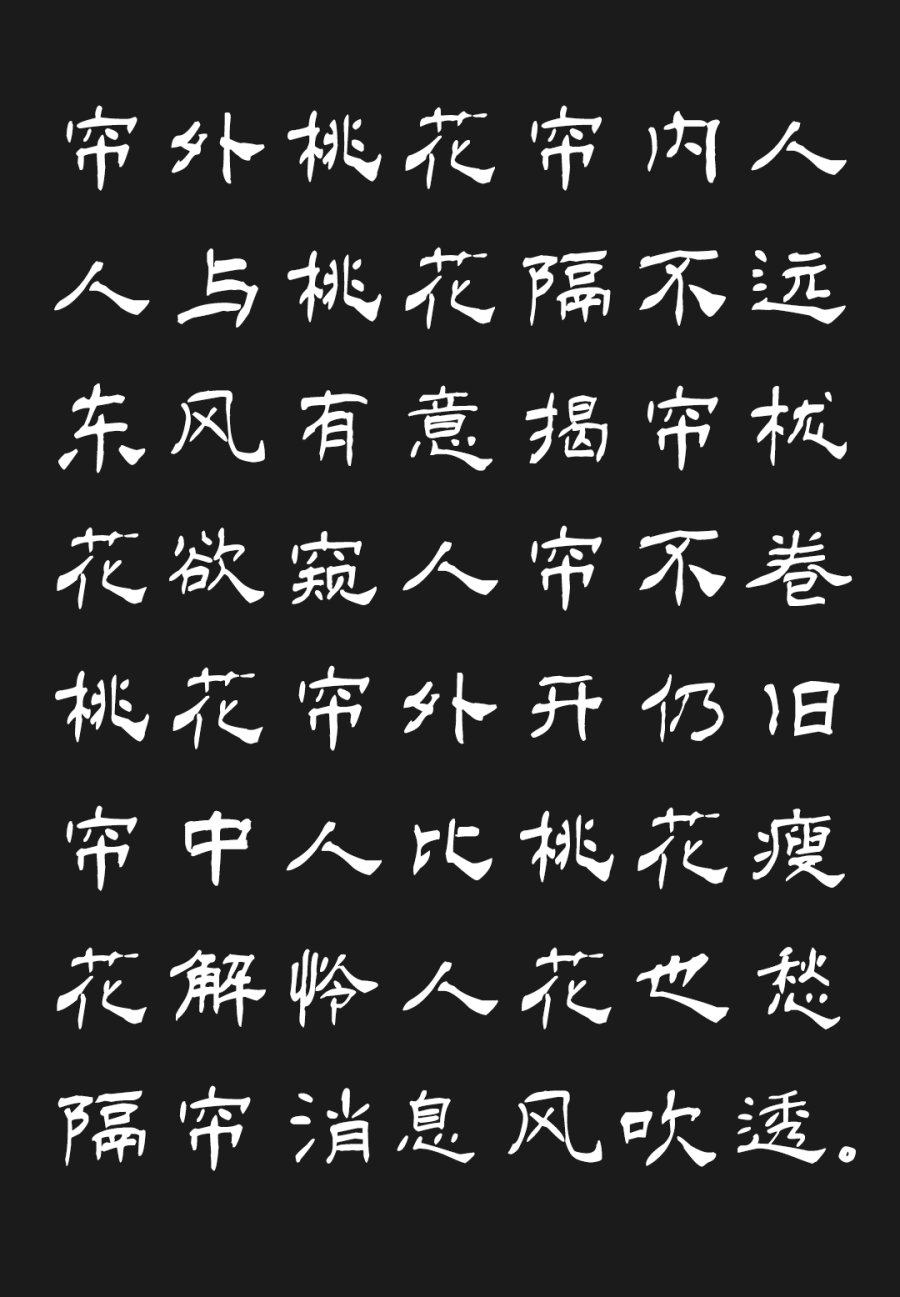 帘外桃花帘内人
人与桃花隔不远
东风有意揭帘栊
花欲窥人帘不卷
桃花帘外开仍旧
帘中人比桃花瘦
花解怜人花也愁
隔帘消息风吹透。